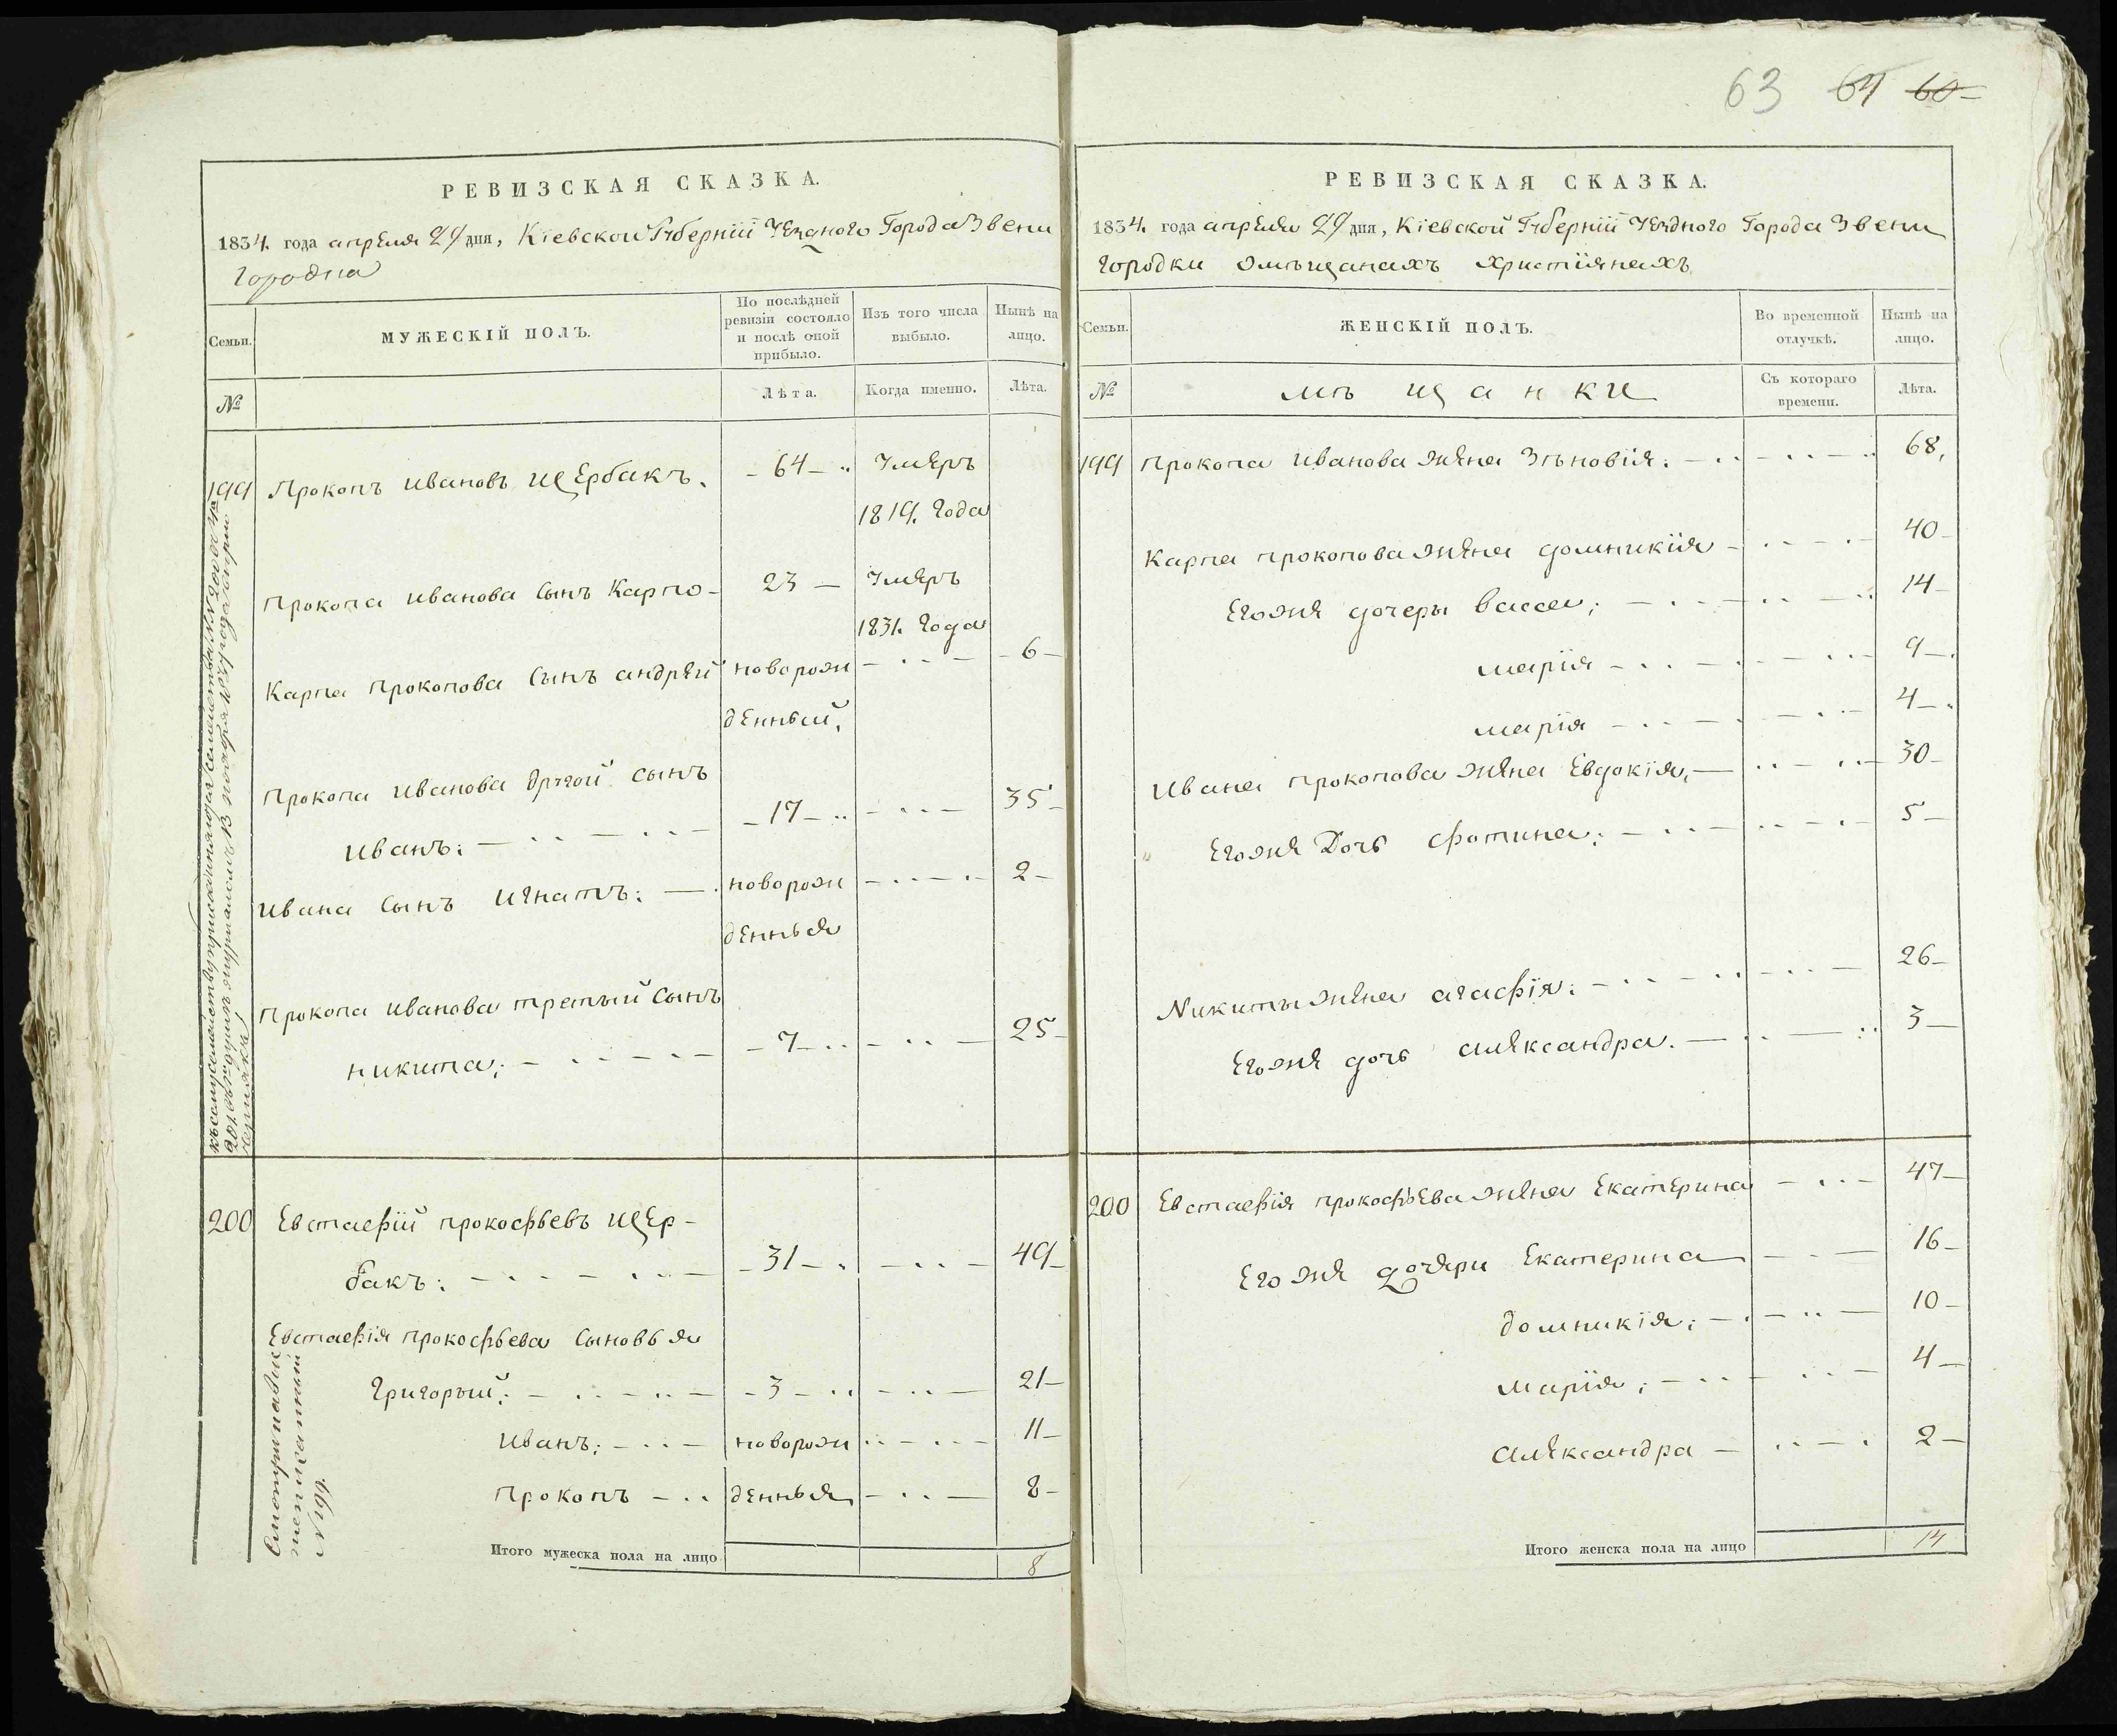 63 64 60
РЕВИЗСКАЯ СКАЗКА.
1834. года апреля 29 дня, Кіевской Губерніи Уезднаго Города Звени
городка
Семьи.
МУЖЕСКІЙ ПОЛЪ.
По послѣдней ревизіи состояло и послѣ оной прибыло.
Изъ того числа выбыло.
Нынѣ на лицо.
№
Лѣта.
Когда именно.
Лѣта.
199 Прокопъ Ивановъ Щербакъ. 64 Умеръ
1819. Года
Прокопа Иванова Сынъ Карпо 23 Умеръ
1831. Года
Карпа Прокопова Сынъ андрей новорож 6
денный,
Прокопа Иванова другой сынъ
Иванъ: 17 35
Ивана Сынъ Игнатъ: новорож 2
денныя
Прокопа Иванова третый Сынъ
никита; 7 25
200 Евстаѳій прокофьевъ Щер-
бакъ: 31 49
Евстаѳія Прокофьева Сыновья
Григорый: 3 21
Иванъ: новорож 11
Прокопъ денныя 8
N 199.
Итого мужеска пола на лицо 8
РЕВИЗСКАЯ СКАЗКА.
1834. года апреля 29 дня, Кіевской Губерніи Уезднаго Города Звени
городки омѣщанахъ христіянахъ
Семьи.
ЖЕНСКІЙ ПОЛЪ.
Во временной отлучкѣ.
Нынѣ на лицо.
№
мѣщанки
Съ котораго времени.
Лѣта.
199 Прокопа Иванова жена Зѣновія: 68,
Карпа прокопова жена домникія 40
Егоже дочеры васса; 14
марія 9
марія 4
Ивана прокопова жена Евдокія, 30
Егоже Дочь Фотина: 5
Никиты жена агафія: 26
Егоже дочь александра. 3
200 Евстаѳія прокофьева жена Екатерина 47
Егоже дочери Екатерина 16
домникія: 10
марія; 4
александра 2
Итого женска пола на лицо 14